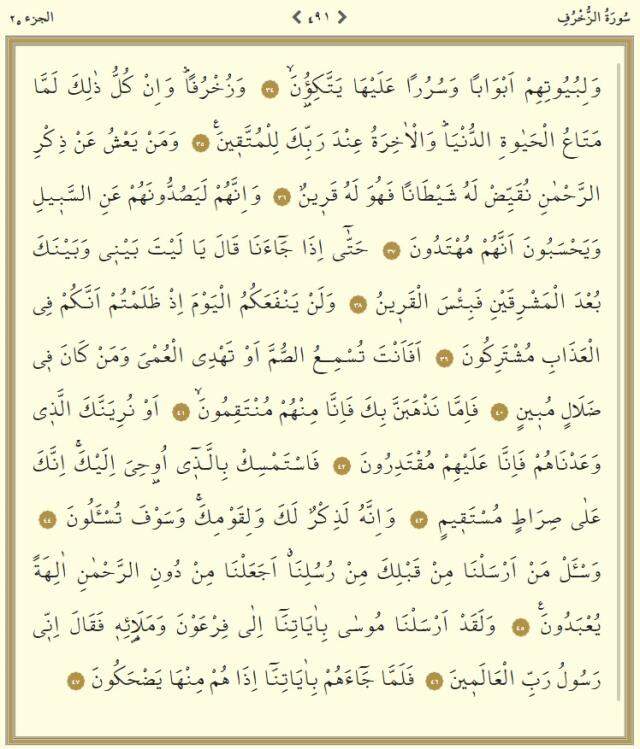 سُورَةُ الزُّخْرُفِ ❮ ٤٩١ ❯ الجزء ٢٥
وَلِبُيُوتِهِمْ اَبْوَابًا وَسُرُرًا عَلَيْهَا يَتَّكِؤُ۫نَۙ ٣٤ وَزُخْرُفًاۜ وَاِنْ كُلُّ ذٰلِكَ لَمَّا
مَتَاعُ الْحَيٰوةِ الدُّنْيَاۜ وَالْاٰخِرَةُ عِنْدَ رَبِّكَ لِلْمُتَّق۪ينَ۟ ٣٥ وَمَنْ يَعْشُ عَنْ ذِكْرِ
الرَّحْمٰنِ نُقَيِّضْ لَهُ شَيْطَانًا فَهُوَ لَهُ قَر۪ينٌ ٣٦ وَاِنَّهُمْ لَيَصُدُّونَهُمْ عَنِ السَّب۪يلِ
وَيَحْسَبُونَ اَنَّهُمْ مُهْتَدُونَ ٣٧ حَتّٰٓى اِذَا جَٓاءَنَا قَالَ يَا لَيْتَ بَيْن۪ي وَبَيْنَكَ
بُعْدَ الْمَشْرِقَيْنِ فَبِئْسَ الْقَر۪ينُ ٣٨ وَلَنْ يَنْفَعَكُمُ الْيَوْمَ اِذْ ظَلَمْتُمْ اَنَّكُمْ فِي
الْعَذَابِ مُشْتَرِكُونَ ٣٩ اَفَاَنْتَ تُسْمِعُ الصُّمَّ اَوْ تَهْدِي الْعُمْيَ وَمَنْ كَانَ ف۪ي
ضَلَالٍ مُب۪ينٍ ٤٠ فَاِمَّا نَذْهَبَنَّ بِكَ فَاِنَّا مِنْهُمْ مُنْتَقِمُونَۙ ٤١ اَوْ نُرِيَنَّكَ الَّذ۪ي
وَعَدْنَاهُمْ فَاِنَّا عَلَيْهِمْ مُقْتَدِرُونَ ٤٢ فَاسْتَمْسِكْ بِالَّذ۪ٓي اُو۫حِيَ اِلَيْكَۚ اِنَّكَ
عَلٰى صِرَاطٍ مُسْتَق۪يمٍ ٤٣ وَاِنَّهُ لَذِكْرٌ لَكَ وَلِقَوْمِكَۚ وَسَوْفَ تُسْـَٔلُونَ ٤٤
وَسْـَٔلْ مَنْ اَرْسَلْنَا مِنْ قَبْلِكَ مِنْ رُسُلِنَاۗ اَجَعَلْنَا مِنْ دُونِ الرَّحْمٰنِ اٰلِهَةً
يُعْبَدُونَ۟ ٤٥ وَلَقَدْ اَرْسَلْنَا مُوسٰى بِاٰيَاتِنَٓا اِلٰى فِرْعَوْنَ وَمَلَا۬ئِه۪ فَقَالَ اِنّ۪ي
رَسُولُ رَبِّ الْعَالَم۪ينَ ٤٦ فَلَمَّا جَٓاءَهُمْ بِاٰيَاتِنَٓا اِذَا هُمْ مِنْهَا يَضْحَكُونَ ٤٧